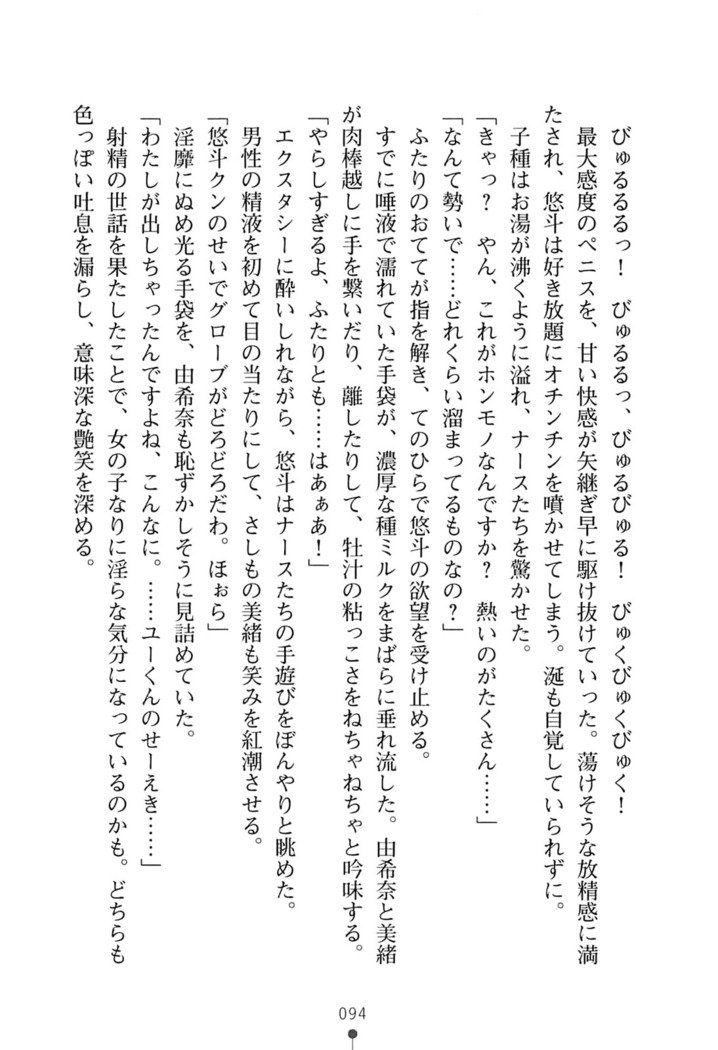 びゅるるるっ！　びゅるるっ、びゅるびゅる！　びゅくびゅくびゅく！
最大感度のペニスを、甘い快感が矢継ぎ早に駆け抜けていった。蕩けそうな放精感に満
たされ、悠斗は好き放題にオチンチンを噴かせてしまう。涎も自覚していられずに。
子種はお湯が沸くように溢れ、ナースたちを驚かせた。
「きゃっ？　やん、これがホンモノなんですか？　熱いのがたくさん……」
「なんて勢いで……どれくらい溜まってるものなの？」
ふたりのおててが指を解き、てのひらで悠斗の欲望を受け止める。
すでに唾液で濡れていた手袋が、濃厚な種ミルクをまばらに垂れ流した。由希奈と美緒
が肉棒越しに手を繋いだり、離したりして、牡汁の粘っこさをねちゃねちゃと吟味する。
「やらしすぎるよ、ふたりとも……はあぁあ！」
エクスタシーに酔いしれながら、悠斗はナースたちの手遊びをぼんやりと眺めた。
男性の精液を初めて目の当たりにして、さしもの美緒も笑みを紅潮させる。
「悠斗クンのせいでグローブがどろどろだわ。ほぉら」
淫靡にぬめ光る手袋を、由希奈も恥ずかしそうに見詰めていた。
「わたしが出しちゃったんですよね、こんなに。……ユーくんのせーえき……」
射精の世話を果たしたことで、女の子なりに淫らな気分になっているのかも。どちらも
色っぽい吐息を漏らし、意味深な艶笑を深める。
094